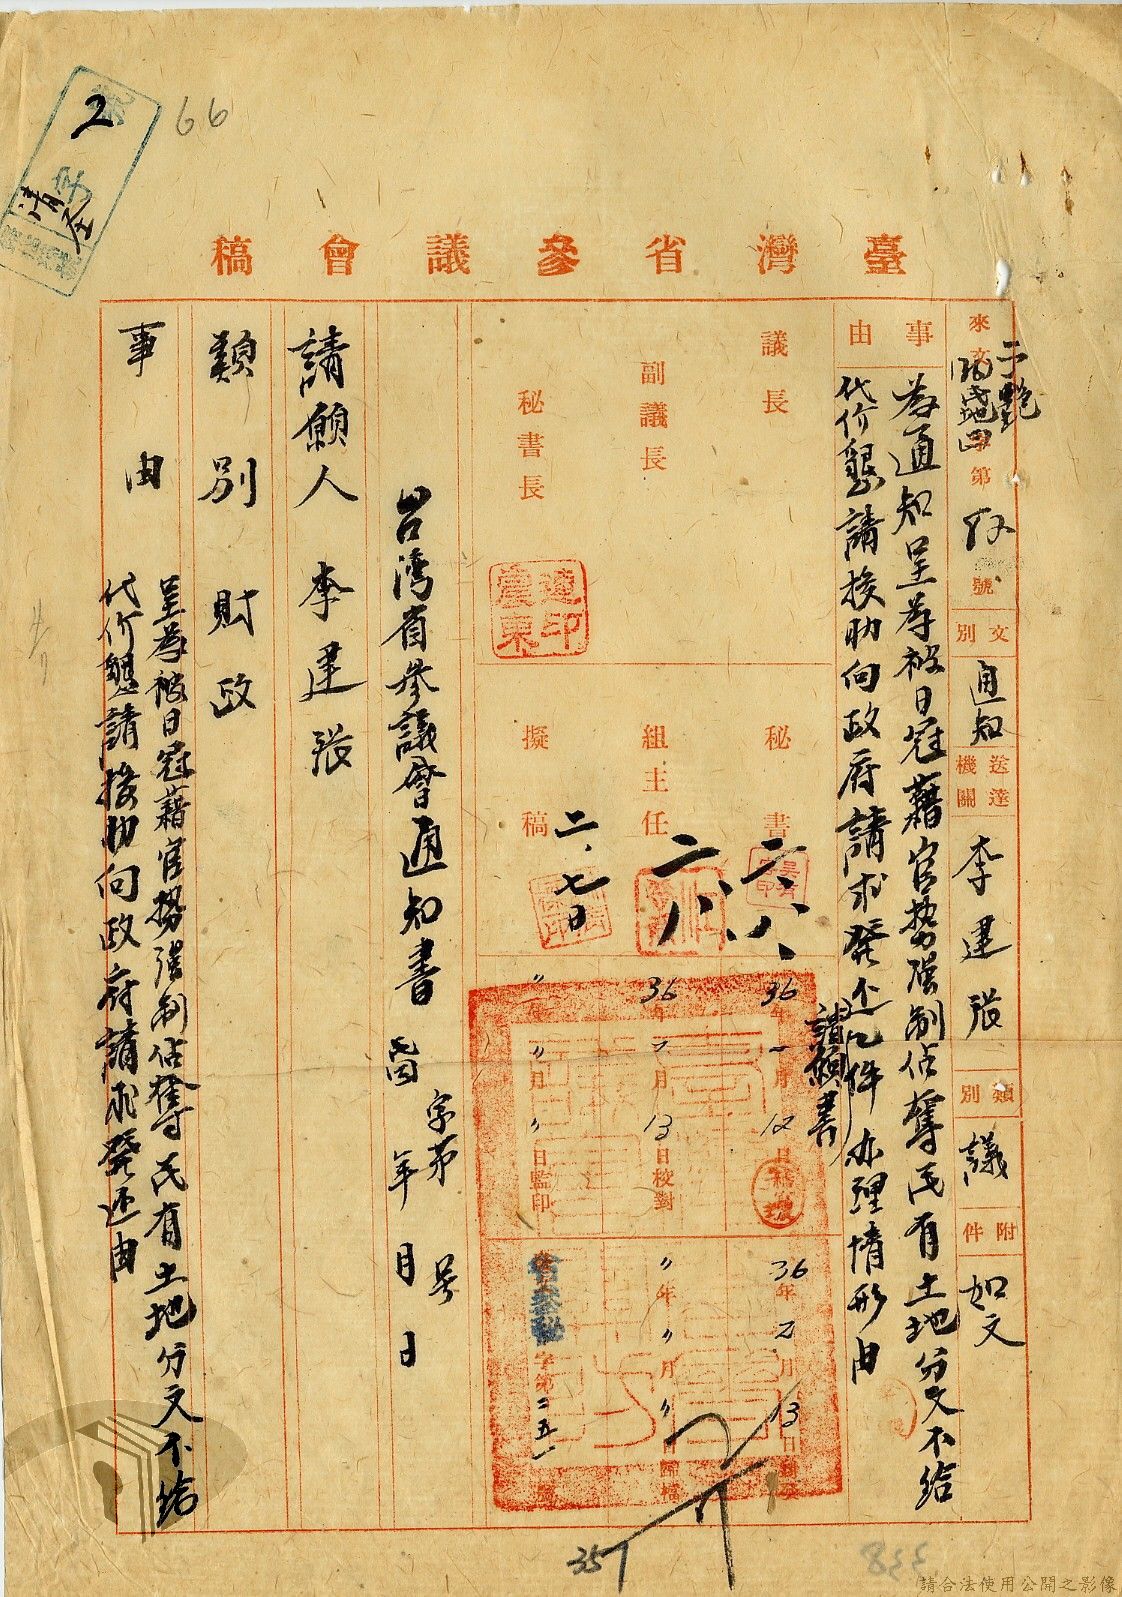 臺灣省參議會稿
2
66
來文
字第
號
文別
通知
送達機關
李建張
類別
議
附件
如文
事由
為通知呈為被日寇藉官勢強制佔奪民有土地分文不給
代价懇請援助向政府請求發还
請願書
乙件办理情形由
議長
副議長
秘書長
秘書
二、八、
組主任
二、八
擬稿
二、七日
連震東印
36年 月12日
36年 月13日校對
〃年〃月〃日監印
36年2月13日封發
〃年〃月〃日歸檔
字第二五一號
台灣省參議會通知書
字第 號
年 月 日
請願人 李建張
類別 財政
事由
呈為被日寇藉官勢強制佔奪民有土地分文不給
代价懇請援助向政府請求發还由
351
833
請合法使用公開之影像